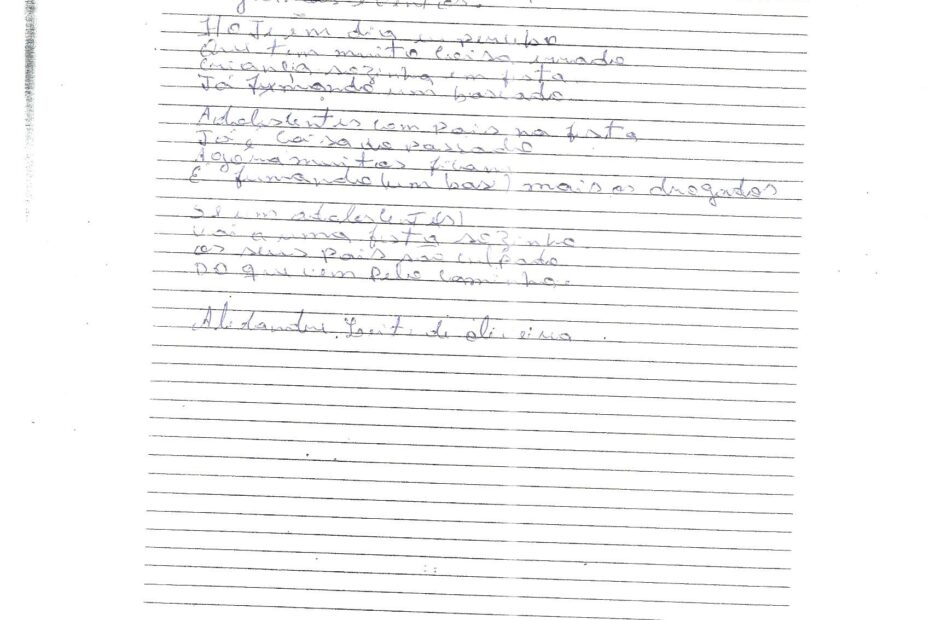 Ho Je em dia eu percebo
Que tem muita coisa errada
Criança sozinha em festa
Já fumando um baseado
Adolescentes com pais na festa
Já é coisa do passado
Agora muitos ficam
E fumando (um bas) mais os drogados
Se um adolesce Te(s)
Vai a uma festa sozinho
os seus pais são culpado
DO que vem pelo caminho.
Leite de oliveira.